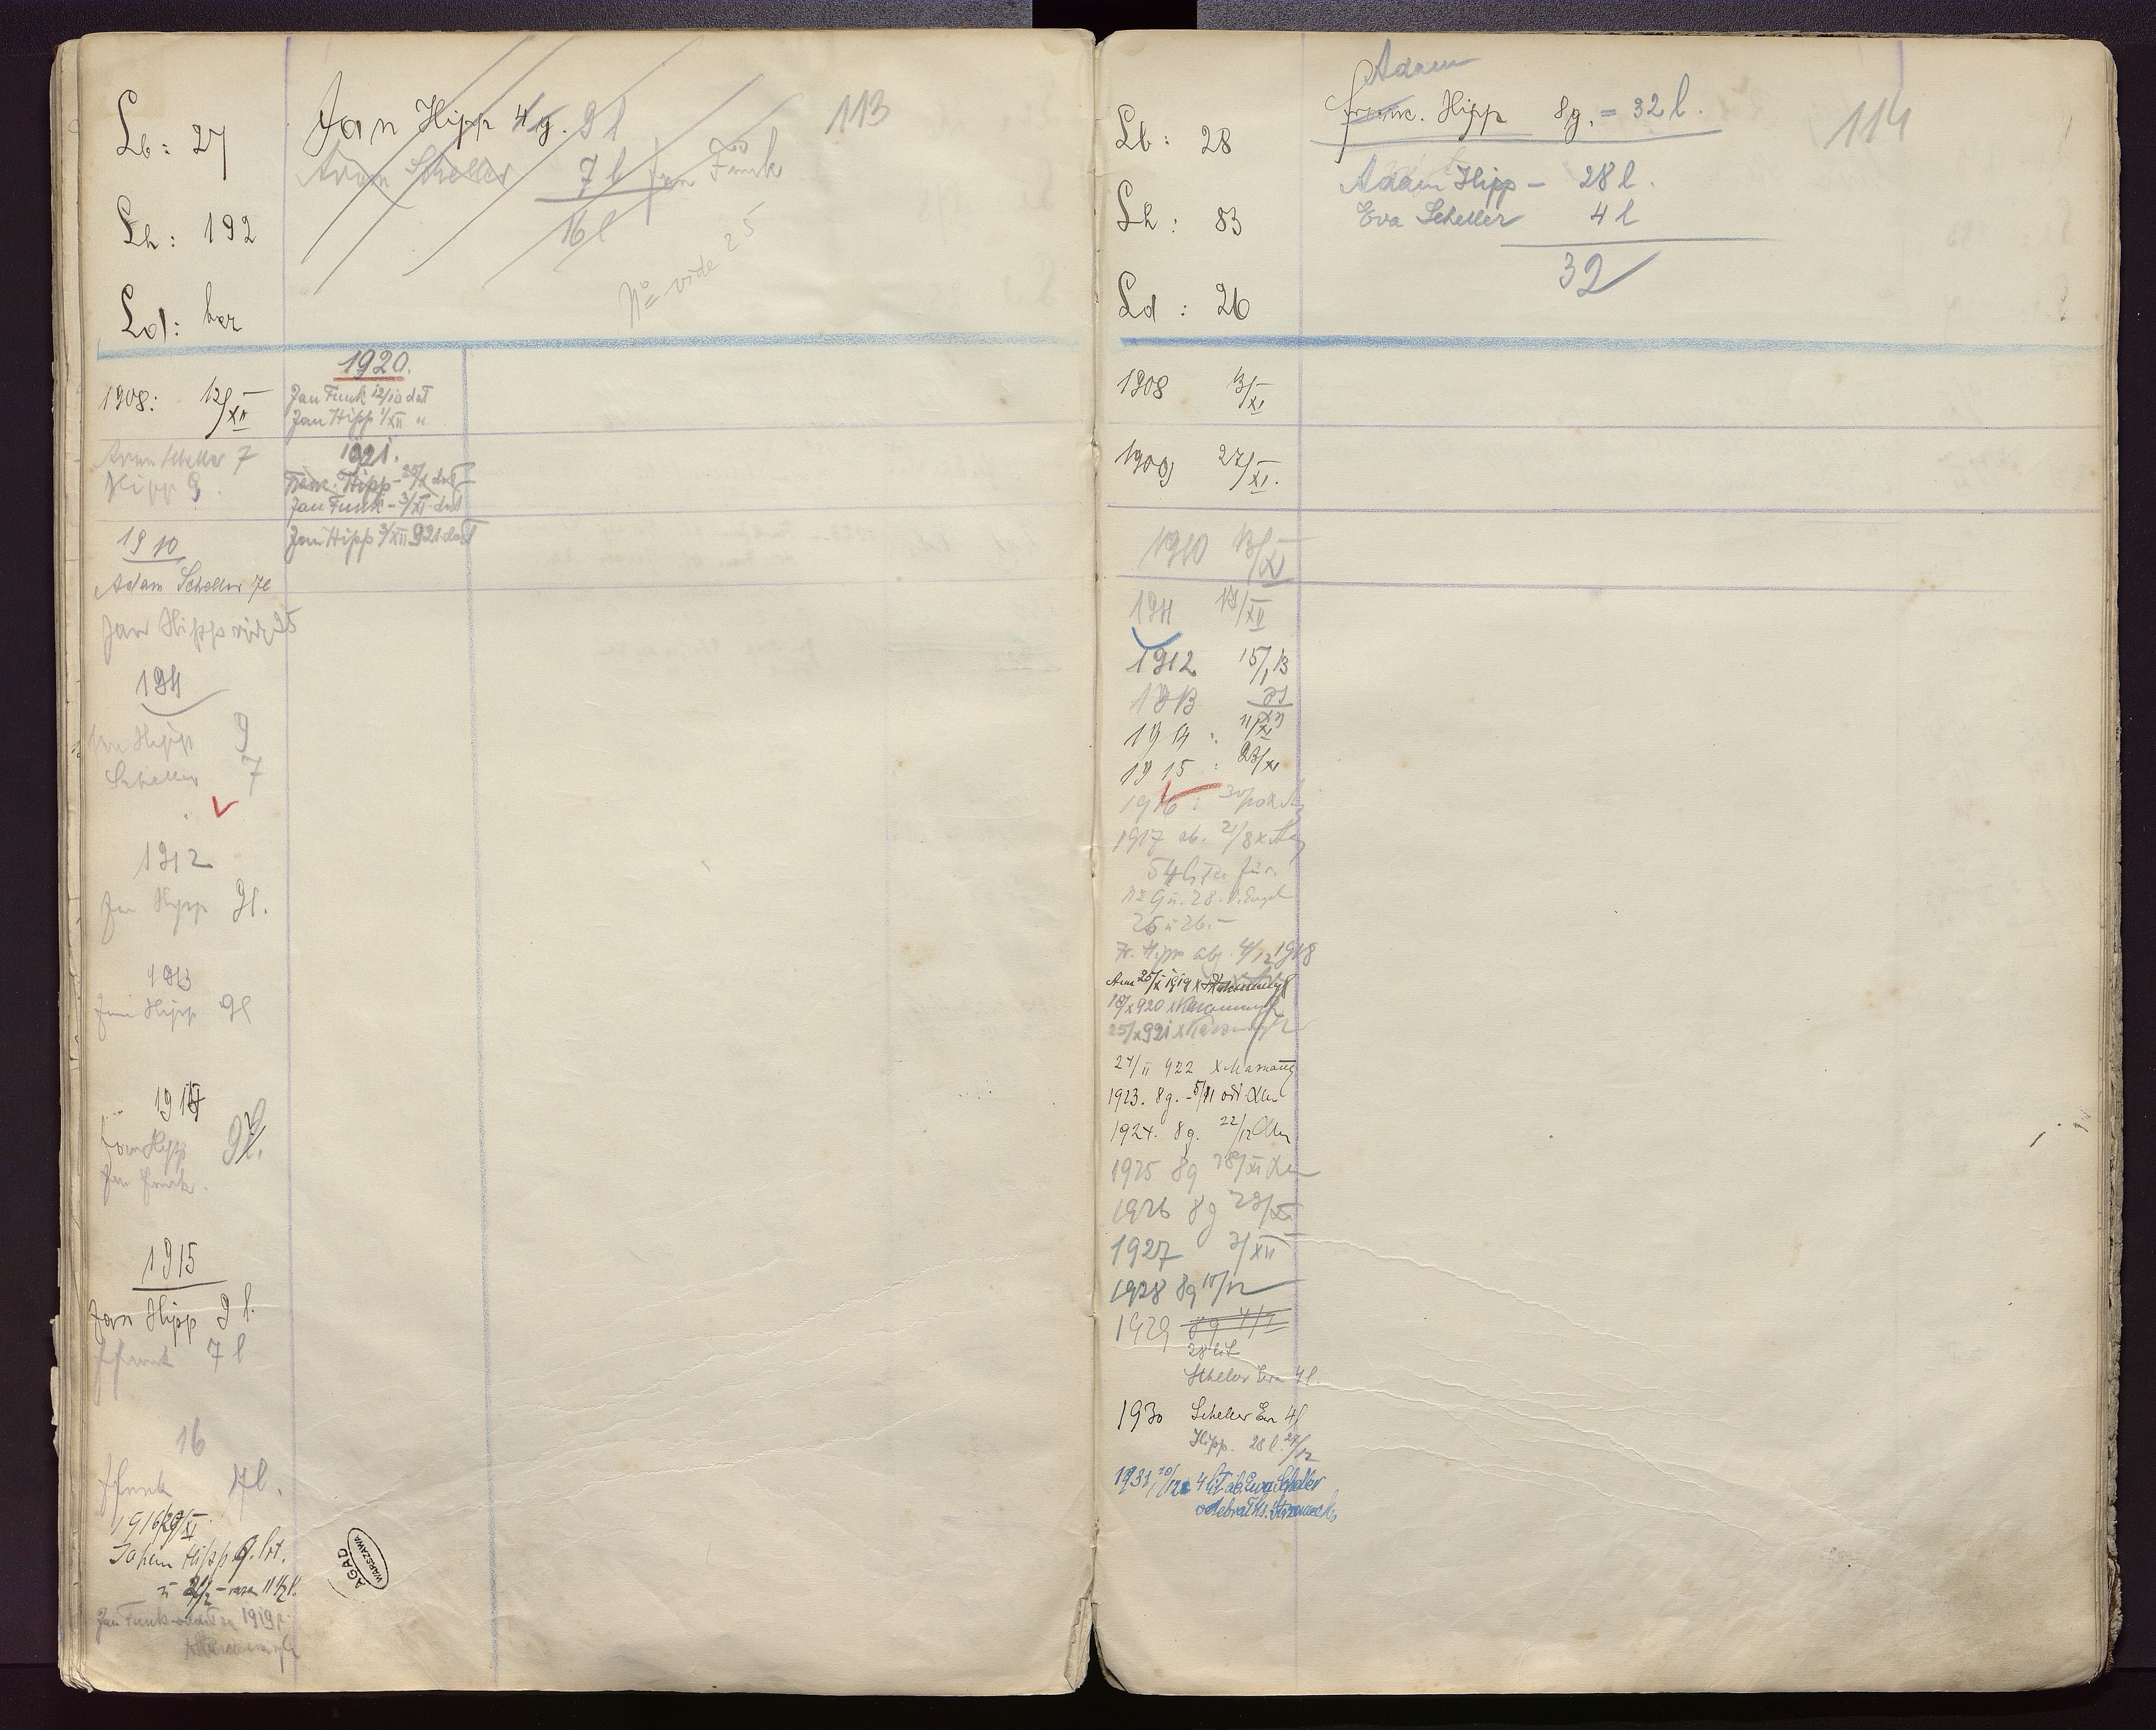 Lb: 27
Lh: 192
Ld: bez
Jan Hipp 4g. 9 l
Adam Scheller 7 l Jan Funk
16 l
No vide 25
113
1908: 12/XII
Adam Scheller 7
Hipp 9.
1910
Adam Scheller 7l
Jan Hipp vide 25
1911
Jan Hipp 9
Scheller 7
1912
Jan Hipp 9l.
1913
Jan Hipp 9l
1914
Jan Hipp 9l.
Jan Funk.
1915
Jan Hipp 9 l.
J Funk 7 l
16
J Funk 7l.
1916 29/XI
Johan Hipp 9. lit.
2 1/2 - razem 11 1/2 l.
Jan Funk oddał za 1919 r.
1920.
Jan Funk 12/10 dał
Jan Hipp 1/XII "
1921.
Franc. Hipp - 25/X dał
Jan Funk - 3/XI dał
Jan Hipp 3/XII 921 dał
AGAD
WARSZAWA
Lb: 28
Lh: 83
Ld: 26
Adam
Franc. Hipp 8g. = 32 l.
Adam Hipp - 28 l.
Eva Scheller 4 l
32
114
1908 13/XI
1909 27/XI.
1910 13/XI
1911 17/XII
1912 15/1 13
1913 21/XII
1914: 11/XI
1915: 23/XI
1916:
1917 ab. 21/8
54 liter für
No 9 u. 28.
25 u 26.-
Fr. Hipp abg. 4/12 1918
Am 25/X 1919
18/X 920
25/X 921
24/II 922
1923. 8g. - 5/11
1924. 8g. 22/12
1925 8g 28/XI
1926 8g 29/XI
1927 3/XII
1928 8g 10/12
1929 8g 4/I
28 lit
Scheler Ewa 4l.
1930 Scheller Ew 4l
Hipp. 28 l. 27/12
1931 20/12 4 lit ab. Ewa Scheller
odebrał Ks.